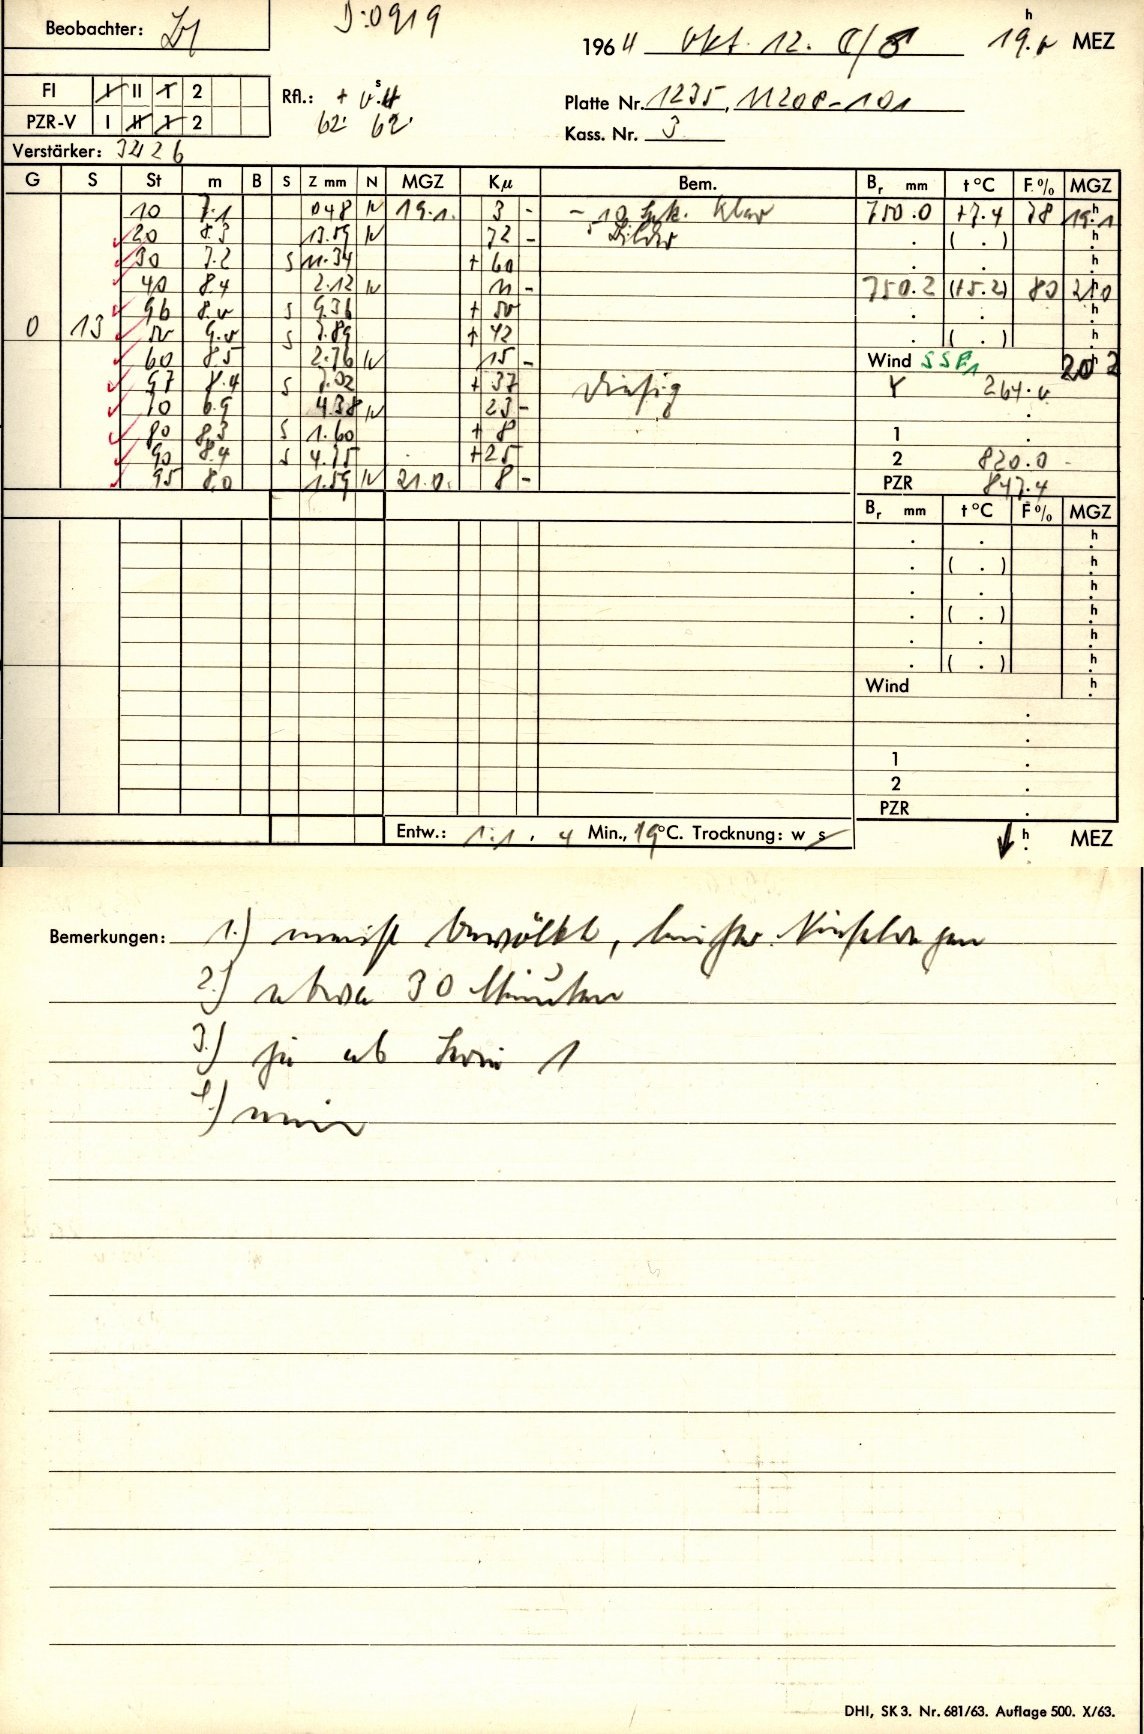 Beobachter:
J:0919
1964 Okt. 12. 19.0 h MEZ
FI I II 1 2
PZR-V I II 1 2
Rfl.: + 0.s4
62 62
Platte Nr. 1235, 11208-101
Kass. Nr. 3
Verstärker: 3426
G S St m B S Z mm N MGZ Kμ Bem. Br mm t °C F % MGZ
10 7.1 048 N 19.1. 3 - - 10 Sek. klar 750.0 +7.4 78 19.1 h
20 8.3 13.59 N 72 - 5 Bilder . ( . ) h
30 7.2 S 11.34 + 60 . . h
40 8.4 2.12 N 11 - 750.2 (+5.2) 80 21.0 h
96 8.0 S 9.36 + 50 . . h
0 13 50 9.0 S 7.89 + 42 . ( . ) h
60 8.5 2.76 N 15 - Wind SSE1 20 h 2
97 8.4 S 7.02 + 37 diesig Y 264.0
70 6.9 4.38 N 23 - .
80 8.3 S 1.60 + 8 1 .
90 8.4 S 4.75 + 25 2 820.0
95 8.0 1.59 N 21.0. 8 - PZR 847.4
Br mm t °C F % MGZ
. . h
. ( . ) h
. . h
. ( . ) h
. . h
. ( . ) h
Wind h
.
.
1 .
2 .
PZR .
Entw.: 1:1, 4 Min., 19 °C. Trocknung: w s
h MEZ
Bemerkungen: 1.) meist bewölkt, leichter Nieselregen
2.) etwa 30 Minuten
3.) ja ab Serie 1
4.) nein
DHI, SK 3. Nr. 681/63. Auflage 500. X/63.